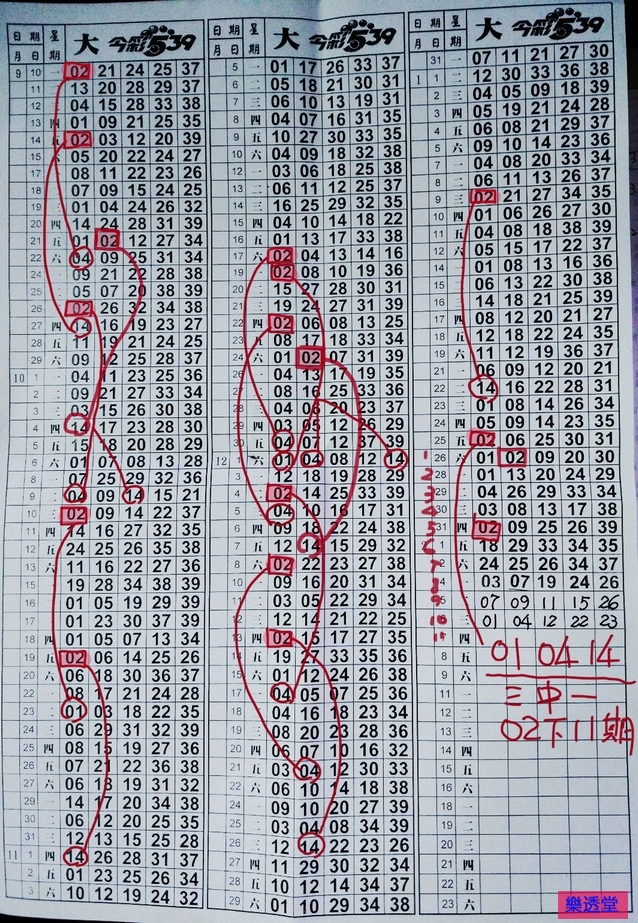 日期 星期 大 今彩539
月 日
9 10 一 02 21 24 25 37
11 二 13 20 28 29 37
12 三 04 15 28 33 38
13 四 01 09 21 25 35
14 五 02 03 12 20 39
15 六 05 20 22 24 27
17 一 08 11 22 23 26
18 二 07 09 15 24 25
19 三 01 04 24 26 32
20 四 14 24 28 31 39
21 五 01 02 12 27 34
22 六 04 09 25 31 34
24 一 09 21 22 28 38
25 二 05 07 20 38 39
26 三 02 26 32 34 38
27 四 14 16 19 23 27
28 五 11 19 21 24 25
29 六 09 12 25 28 37
10 1 一 04 11 23 25 36
2 二 09 21 27 33 34
3 三 03 15 26 30 38
4 四 14 17 23 28 30
5 五 15 18 20 28 29
6 六 01 07 08 13 28
8 一 07 25 29 32 36
9 二 04 09 14 15 21
10 三 02 09 14 22 37
11 四 14 16 27 32 35
12 五 24 25 26 35 38
13 六 11 16 22 27 36
15 一 19 28 34 38 39
16 二 01 05 19 29 39
17 三 01 23 30 37 39
18 四 01 05 07 13 34
19 五 02 06 14 25 26
20 六 06 18 30 36 37
22 一 08 17 21 24 28
23 二 01 03 18 22 35
24 三 06 29 31 32 39
25 四 08 15 19 27 36
26 五 07 21 22 36 38
27 六 06 18 19 31 32
29 一 14 17 20 34 38
30 二 06 12 20 25 35
31 三 12 13 15 25 28
11 1 四 14 26 28 31 37
2 五 01 23 25 26 34
3 六 10 12 19 24 32
日期 星期 大 今彩539
月 日
5 一 01 17 26 33 37
6 二 05 18 21 30 31
7 三 06 10 13 19 31
8 四 04 07 16 31 35
9 五 10 27 30 33 35
10 六 04 09 18 32 38
12 一 03 06 18 25 38
13 二 06 11 12 25 37
14 三 16 25 29 32 35
15 四 04 10 14 18 22
16 五 01 13 17 33 38
17 六 02 04 13 14 16
19 一 02 08 10 19 36
20 二 15 27 28 30 31
21 三 19 24 27 31 39
22 四 02 06 08 13 25
23 五 08 17 18 33 34
24 六 01 02 07 31 39
26 一 04 13 19 35
27 二 08 16 25 33 36
28 三 04 06 23 37
29 四 03 05 12 26 29
30 五 04 07 12 37 39
12 1 六 01 04 08 12 14
3 一 12 18 19 28 29
4 二 02 14 25 33 39
5 三 04 10 16 17 31
6 四 09 18 22 24 38
7 五 12 14 15 29 32
8 六 02 22 23 27 38
10 一 09 16 20 31 34
11 二 03 05 22 29 34
12 三 12 14 21 22 25
13 四 02 15 17 27 35
14 五 19 27 33 35 36
15 六 01 12 24 26 38
17 一 04 05 07 25 36
18 二 04 16 18 23 34
19 三 08 20 23 28 36
20 四 06 07 10 16 32
21 五 03 04 12 30 33
22 六 06 10 14 18 38
24 一 09 10 20 27 39
25 二 03 04 08 34 39
26 三 12 14 22 23 26
27 四 11 29 30 32 34
28 五 10 12 14 34 37
29 六 01 10 29 34 38
日期 星期 大 今彩539
月 日
31 一 07 11 21 27 30
1 1 二 12 30 33 36 38
2 三 04 05 09 18 39
3 四 05 19 21 24 28
4 五 06 08 21 29 37
5 六 09 10 14 23 36
7 一 04 08 20 33 34
8 二 06 11 13 26 37
9 三 02 21 27 34 35
10 四 01 06 26 27 30
11 五 04 08 18 38 39
12 六 05 15 17 22 37
14 一 01 08 13 16 36
15 二 06 13 22 30 38
16 三 14 18 21 25 39
17 四 08 12 20 21 27
18 五 12 18 22 24 35
19 六 11 12 19 36 37
21 一 06 09 12 20 21
22 二 14 16 22 28 31
23 三 01 08 14 26 34
24 四 05 09 14 23 35
25 五 02 06 25 30 31
26 六 01 02 09 20 30
28 一 01 13 20 24 29
29 二 04 26 29 33 34
30 三 03 08 13 17 38
31 四 02 09 25 26 39
1 五 18 29 33 34 35
2 六 24 25 26 34 37
4 一 03 07 19 24 26
5 二 07 09 11 15 26
01 04 12 22 23
四
8 五 01 04 14
9 六
11 一 三中一
12 二 02下11期
13 三
14 四
15 五
16 六
18 一
19 二
20 三
21 四
22 五
23 六
樂透堂